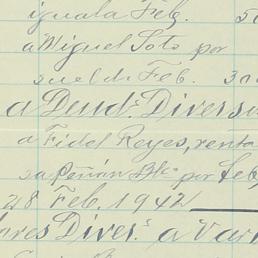 iguala Feb. 50
a Miguel Soto por
sueldo Feb. 300
a Deud.s Diversos
a Fidel Reyes, renta
sa Peñón Blco por Feb.
28 Feb. 1942
ores Divers.s a Var